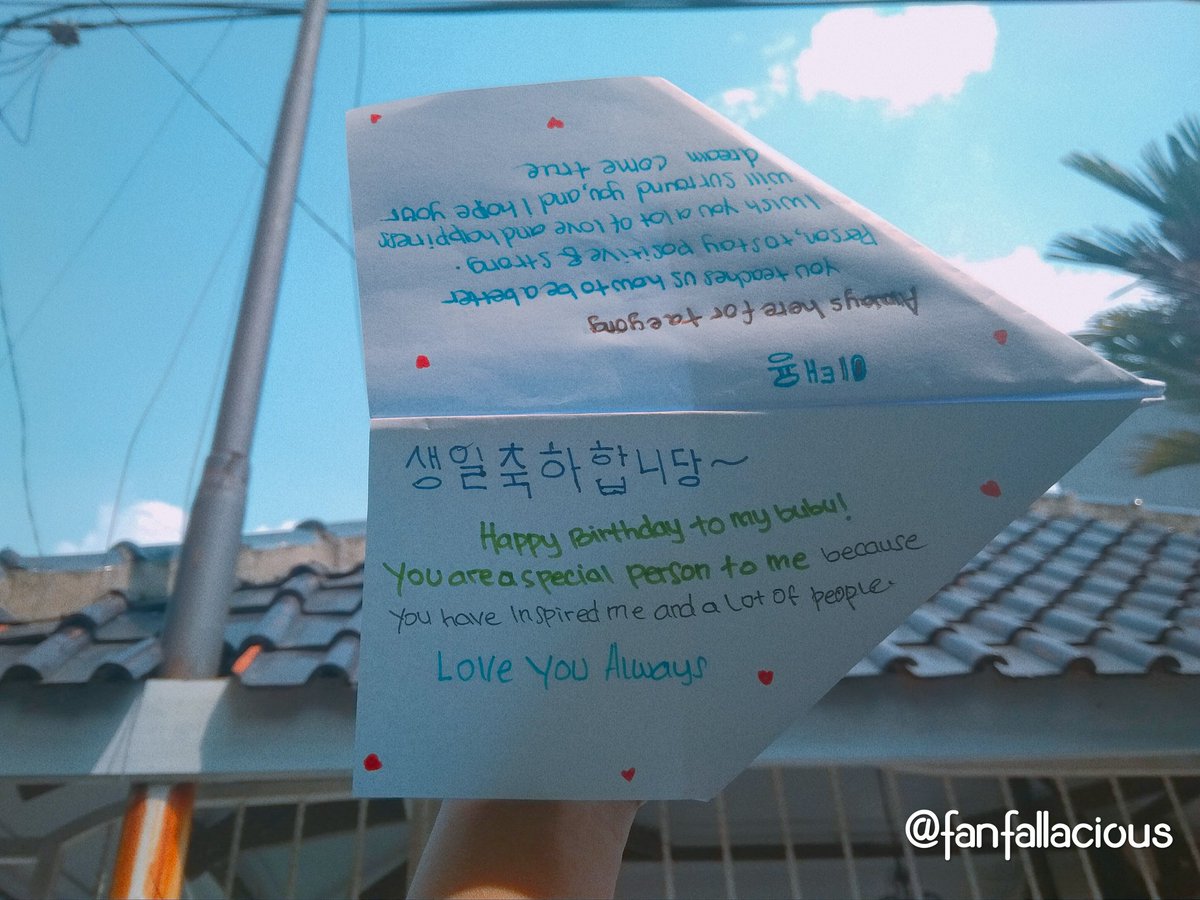 이태용
Always here for taeyong
you teaches us how to be a better
Person, to stay positive & strong.
I wish you a lot of love and happiness
will surround you, and I hope your
dream come true
생일축하합니당~
Happy Birthday to my bubu!
You are a special person to me because
you have inspired me and a lot of people.
Love You Always
@fanfallacious